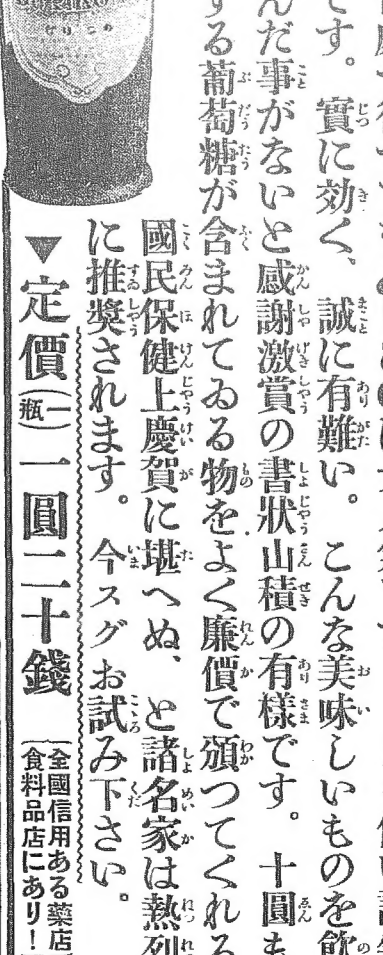 す。實に効く、誠に有難い。こんな美味しいものを飲
んだ事がないと感謝激賞の書狀山積の有様です。十圓も
する葡萄糖が含まれてゐる物をよく廉價で頒つてくれる
國民保健上慶賀に堪へぬ、と諸名家は熱
に推奬されます。今スグお試み下さい。
▼定價(一瓶)一圓二十錢
全國信用ある藥店
食料品店にあり！
どりこの